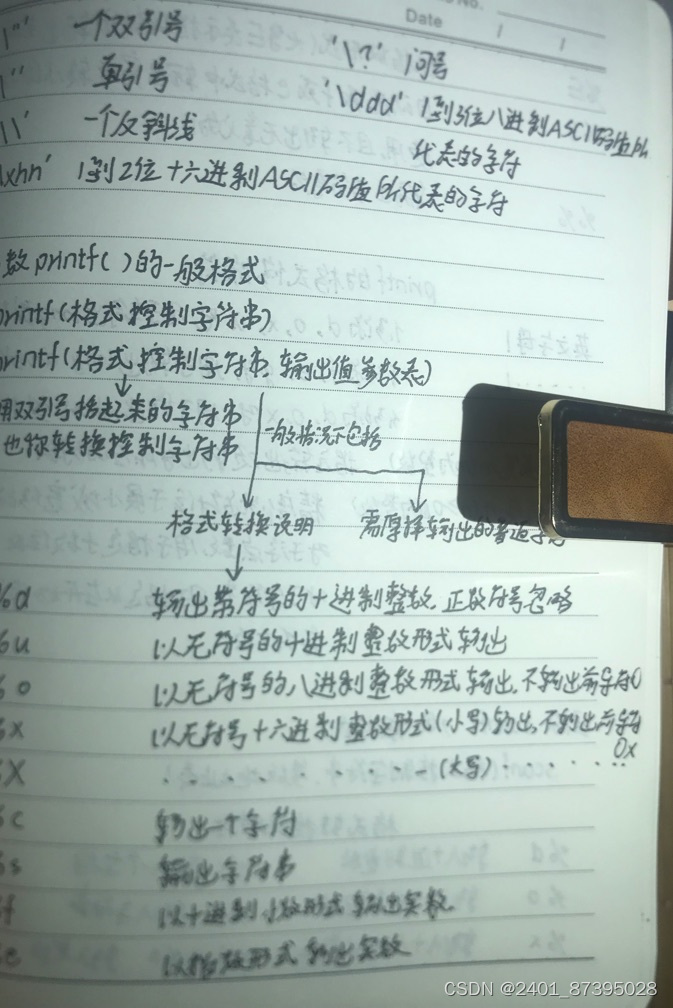 No.
Date
\"' 一个双引号 '\?' 问号
\'' 单引号 '\ddd' 1到3位八进制ASCII码值所
\\' 一个反斜线 代表的字符
\xhh' 1到2位十六进制ASCII码值所代表的字符
数printf()的一般格式
printf(格式控制字符串)
printf(格式控制字符串,输出值参数表)
用双引号括起来的字符串 一般情况下包括
也你转换控制字符串
格式转换说明 需原样输出的普通字符
%d 输出带符号的十进制整数,正数符号忽略
%u 以无符号的十进制整数形式输出
%o 以无符号的八进制整数形式输出,不输出前导符0
%x 以无符号十六进制整数形式(小写)输出,不输出前导符
0x
%X . . . . . . . . . (大写) . . . . . .
%c 输出一个字符
%s 输出字符串
%f 以十进制小数形式输出实数
%e 以指数形式输出实数
CSDN @2401_87395028